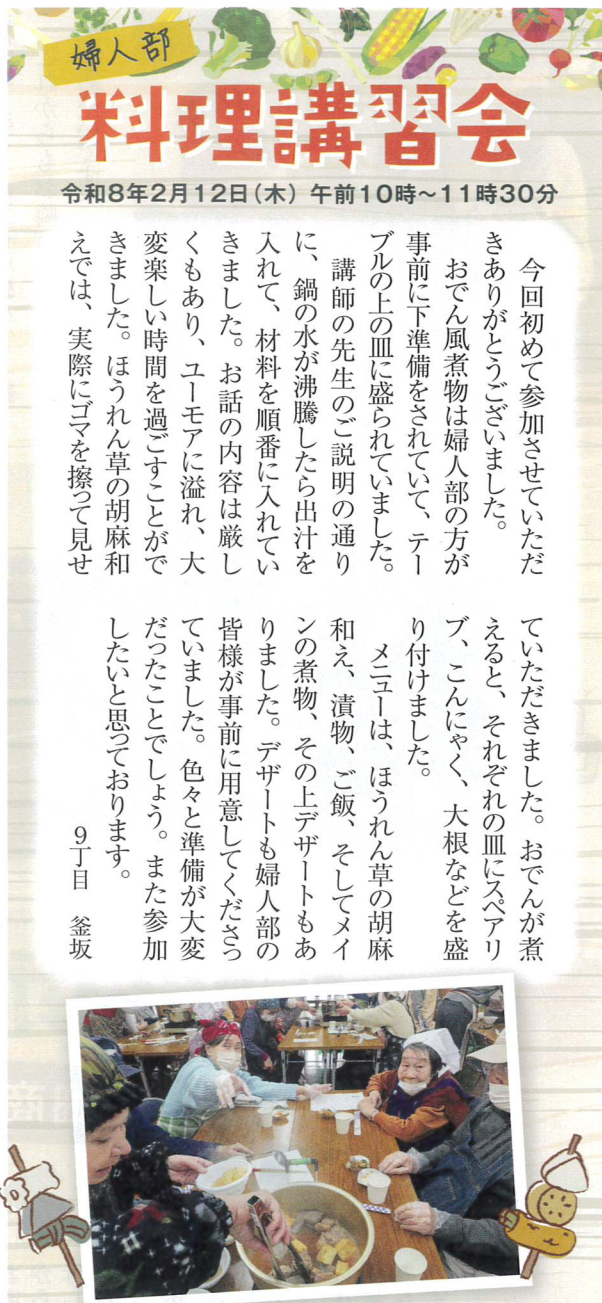 婦人部
料理講習会
令和8年2月12日(木) 午前10時～11時30分
今回初めて参加させていただ
きありがとうございました。
おでん風煮物は婦人部の方が
事前に下準備をされていて、テー
ブルの上の皿に盛られていました。
講師の先生のご説明の通り
に、鍋の水が沸騰したら出汁を
入れて、材料を順番に入れてい
きました。お話の内容は厳し
くもあり、ユーモアに溢れ、大
変楽しい時間を過ごすことがで
きました。ほうれん草の胡麻和
えでは、実際にゴマを擦って見せ
ていただきました。おでんが煮
えると、それぞれの皿にスペアリ
ブ、こんにゃく、大根などを盛
り付けました。
メニューは、ほうれん草の胡麻
和え、漬物、ご飯、そしてメイ
ンの煮物、その上デザートもあ
りました。デザートも婦人部の
皆様が事前に用意してくださっ
ていました。色々と準備が大変
だったことでしょう。また参加
したいと思っております。
9丁目 釜坂